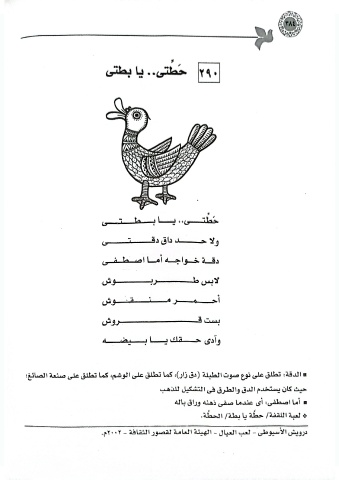 ٢٨٤
٢٩٠
حَطَّتى.. يا بطتى
حَطَّتى.. يــا بــطــتــى
ولا حــد داق دقــتــى
دقة خواجه أما اصطفى
لابس طــربــوش
أحــمــر مــنــقــوش
بست قــروش
وآدى حقك يـا بـيـضـه
▪ الدقة: تطلق على نوع صوت الطبلة (دق زار)، كما تطلق على الوشم، كما تطلق على صنعة الصائغ؛
حيث كان يستخدم الدق والطرق فى التشكيل للذهب
▪ أما اصطفى: أى عندما صفى ذهنه وراق باله
❖ لعبة اللقفة/ حطَّة يا بطة/ الحطَّة.
درويش الأسيوطى - لعب العيال - الهيئة العامة لقصور الثقافة - ٢٠٠٢م.